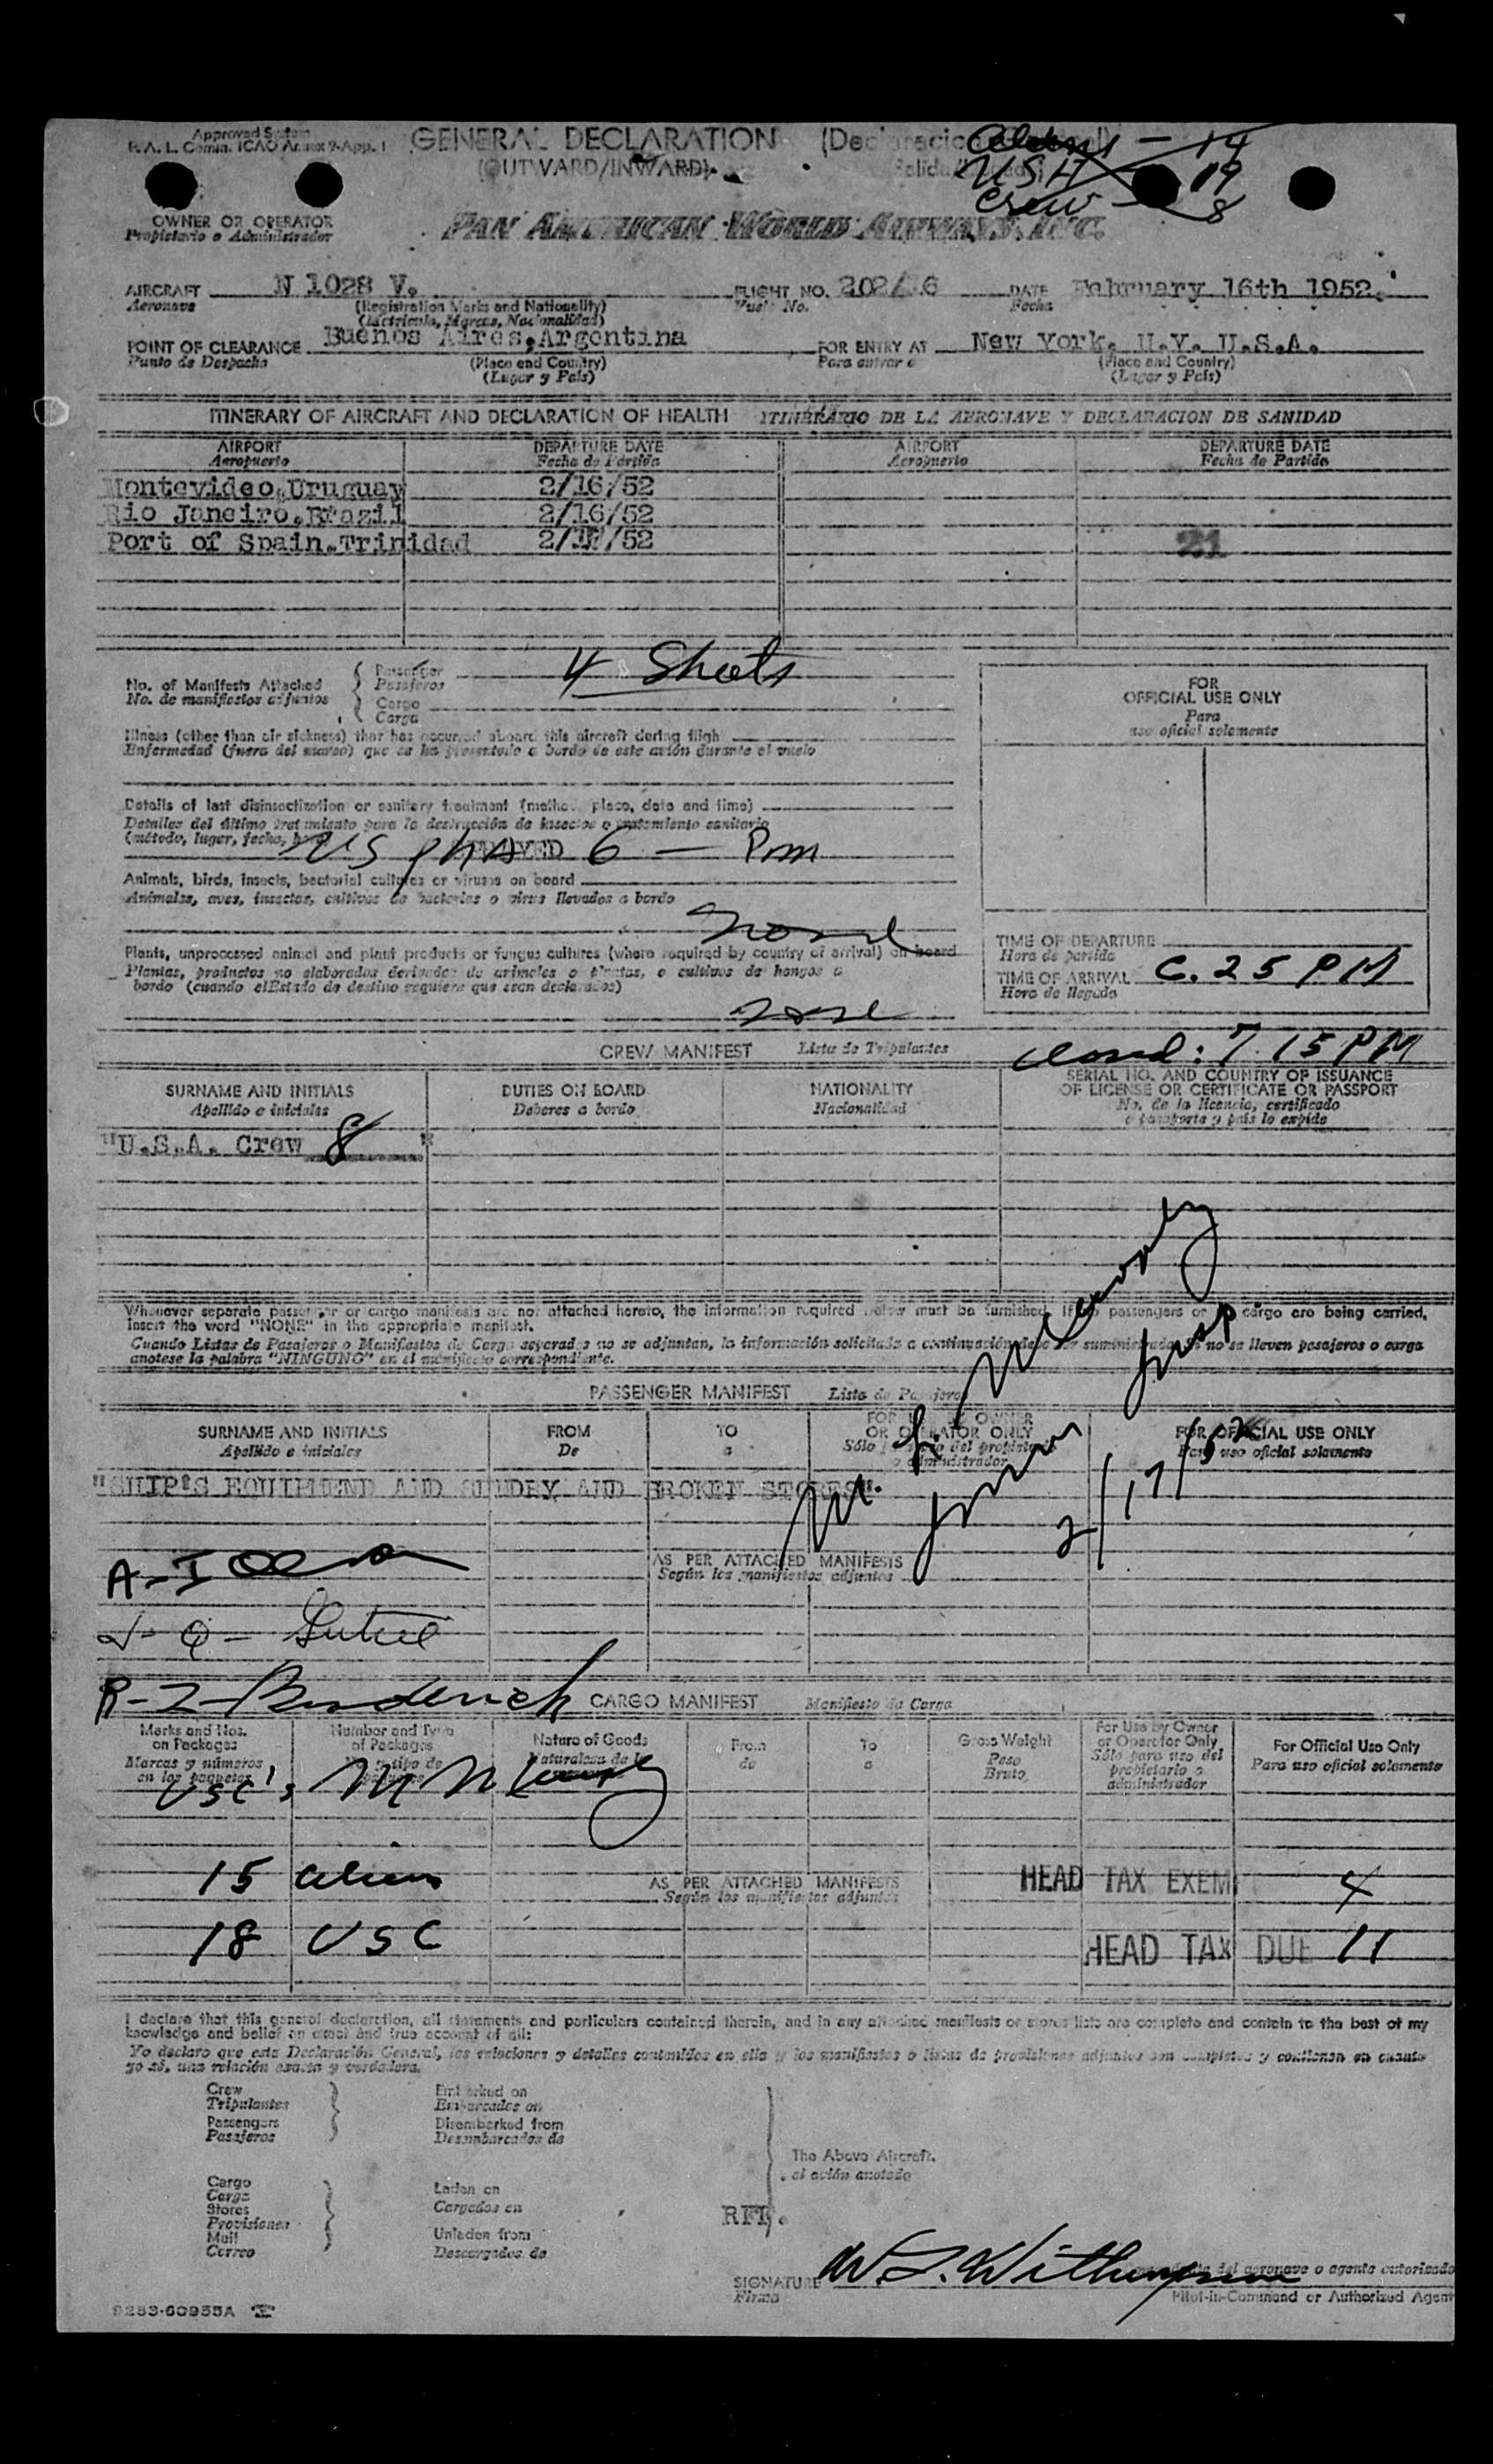 Approved System
F.A.L. Comm. ICAO Annex 9-App. 1
GENERAL DECLARATION
(OUTWARD/INWARD)
Aliens - 14
USA 19
Crew - 8
OWNER OR OPERATOR
Propietario o Administrador
PAN AMERICAN WORLD AIRWAYS, INC.
AIRCRAFT N 1028 V. FLIGHT NO. 202/ 6 DATE February 16th 1952.
Aeronave (Registration Marks and Nationality) Vuelo No. Fecha
(Matricula, Marcas, Nacionalidad)
POINT OF CLEARANCE Buenos Aires, Argentina FOR ENTRY AT New York. N.Y. U.S.A.
Punto de Despacho (Place and Country) Para entrar a (Place and Country)
(Lugar y País) (Lugar y País)
ITINERARY OF AIRCRAFT AND DECLARATION OF HEALTH ITINERARIO DE LA AERONAVE Y DECLARACION DE SANIDAD
AIRPORT DEPARTURE DATE AIRPORT DEPARTURE DATE
Aeropuerto Fecha de Partida Aeropuerto Fecha de Partida
Montevideo, Uruguay 2/16/52
Rio Janeiro, Brazil 2/16/52
Port of Spain. Trinidad 2/17/52 21
No. of Manifests Attached Passenger 4 Sheets
No. de manifiestos adjuntos Pasajeros
Cargo
Carga
FOR
OFFICIAL USE ONLY
Para
uso oficial solamente
Illness (other than air sickness) that has occurred aboard this aircraft during fligh
Enfermedad (fuera del mareo) que se ha presentado a bordo de este avión durante el vuelo
Details of last disinsectization or sanitary treatment (method, place, date and time)
Detalles del último tratamiento para la destrucción de insectos o tratamiento sanitario
(método, lugar, fecha,
6 - Pm
Animals, birds, insects, bacterial cultures or viruses on board
Animales, aves, insectos, cultivos de bacterias o virus llevados a bordo
none
Plants, unprocessed animal and plant products or fungus cultures (where required by country of arrival) on board
Plantas, productos no elaborados derivados de animales o plantas, o cultivos de hongos a
bordo (cuando elEstado de destino requiera que sean declarados)
none
TIME OF DEPARTURE
Hora de partida
TIME OF ARRIVAL 6.25 PM
Hora de llegada
CREW MANIFEST Lista de Tripulantes
closed: 7.15 PM
SURNAME AND INITIALS DUTIES ON BOARD NATIONALITY SERIAL NO. AND COUNTRY OF ISSUANCE
OF LICENSE OR CERTIFICATE OR PASSPORT
Apellido e iniciales Deberes a bordo Nacionalidad No. de la licencia, certificado
o pasaporte y país lo expide
"U.S.A. Crew 8 "
Whenever separate passenger or cargo manifests are not attached hereto, the information required below must be furnished. If passengers or cargo are being carried,
insert the word "NONE" in the appropriate manifest.
Cuando Listas de Pasajeros o Manifiestos de Carga separados no se adjuntan, la información solicitada a continuación no se lleven pasajeros o carga
anotese la palabra "NINGUNO" en el manifiesto correspondiente.
PASSENGER MANIFEST Lista de Pasajeros
SURNAME AND INITIALS FROM TO OWNER
OR OPERATOR ONLY FOR OFFICIAL USE ONLY
Apellido e iniciales De a Para uso oficial solamente
"SHIP'S EQUIPMEND AND SUNDRY AND BROKEN STORES"
2/17/52
AS PER ATTACHED MANIFESTS
Según los manifiestos adjuntos
CARGO MANIFEST Manifiesto de Carga
Marks and Nos.
on Packages
Marcas y números
en los paquetes
Number and Type
of Packages
Nature of Goods
From
de
To
a
Gross Weight
Peso
Bruto
For Use by Owner
or Operator Only
Sólo para uso del
propietario o
administrador
For Official Use Only
Para uso oficial solamente
USC's
15 aliens
AS PER ATTACHED MANIFESTS
Según los manifiestos adjuntos
HEAD TAX EXEM 4
18 USC
HEAD TAX DUE 11
I declare that this general declaration, all statements and particulars contained therein, and in any attached manifests or stores lists are complete and contain to the best of my
knowledge and belief an exact and true account of all:
Yo declaro que esta Declaración General, las relaciones y detalles contenidos en ella y los manifiestos o listas de provisiones adjuntos son completos y contienen en cuanto
yo sé, una relación exacta y verdadera.
Crew
Tripulantes
Passengers
Pasajeros
Embarked on
Embarcados on
Disembarked from
Desembarcados de
The Above Aircraft.
el avión anotado
Cargo
Carga
Stores
Provisiones
Mail
Correo
Laden on
Cargados en
Unladen from
Descargados de
SIGNATURE
Firma
del aeronave o agente autorizado
Pilot-in-Command or Authorized Agent
9283-60955A